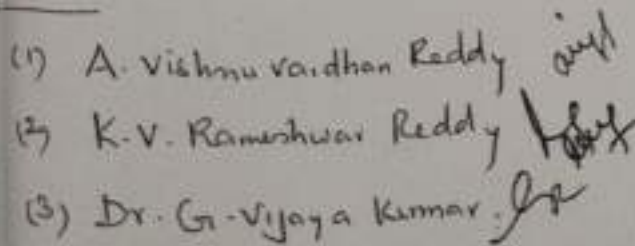 (1) A. Vishnu vardhan Reddy
(2) K.V. Rameshwar Reddy
(3) Dr. G. Vijaya Kumar.